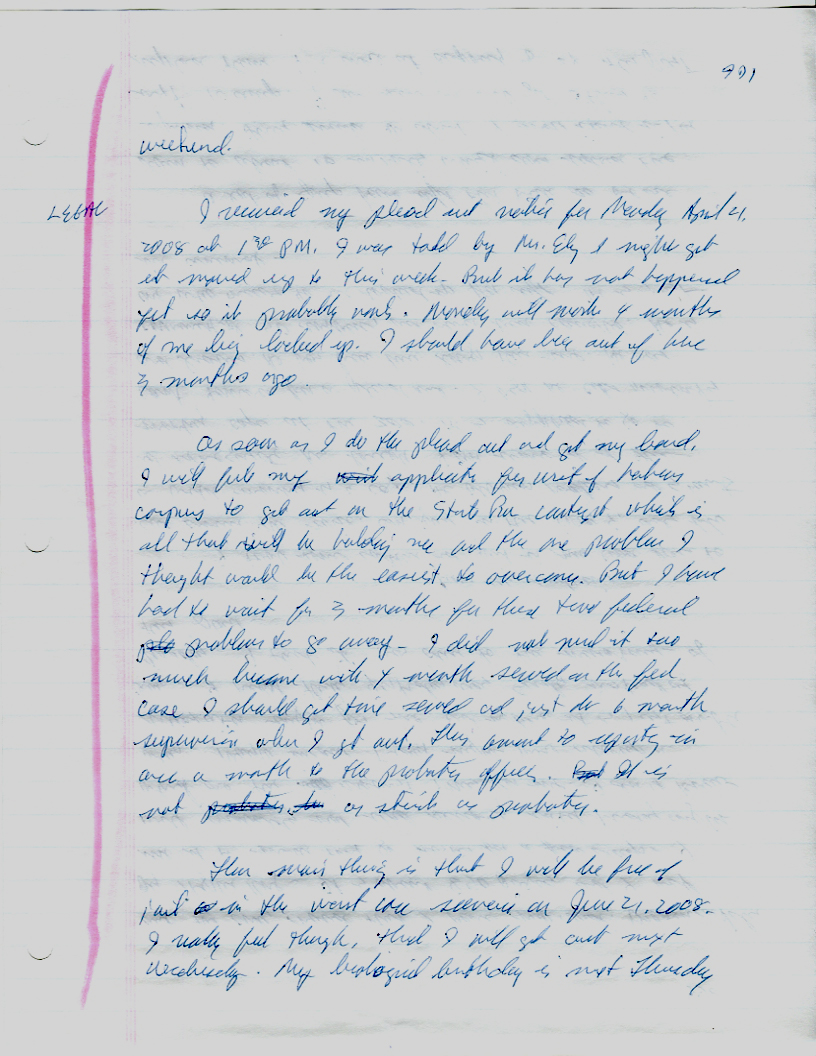 991
weekend.
LEGAL
I received my plead out notice for Monday April 21,
2008 at 1:30 P.M. I was told by Mr. Ely I might get
it moved up to this week. But it has not happened
yet so it probably won't. Monday will mark 4 months
of me being locked up. I should have been out of here
3 months ago.
As soon as I do the plead out and get my bond,
I will file my writ application for writ of habeas
corpus to get out on the State Bar contempt which is
all that will be holding me and the one problem I
thought would be the easiest to overcome. But I have
had to wait for 3 months for these two federal
problems to go away. I did not mind it too
much because with 4 month served on the fed
case I should get time served and just do 6 month
supervision when I get out. This amount to reporting in
once a month to the probation officer. But It is
not probation as strict as probation.
The main thing is that I will be free of
jail in the worst case scenerio on June 21, 2008.
I really feel though, that I will get out next
Wednesday. My biological birthday is next Thursday